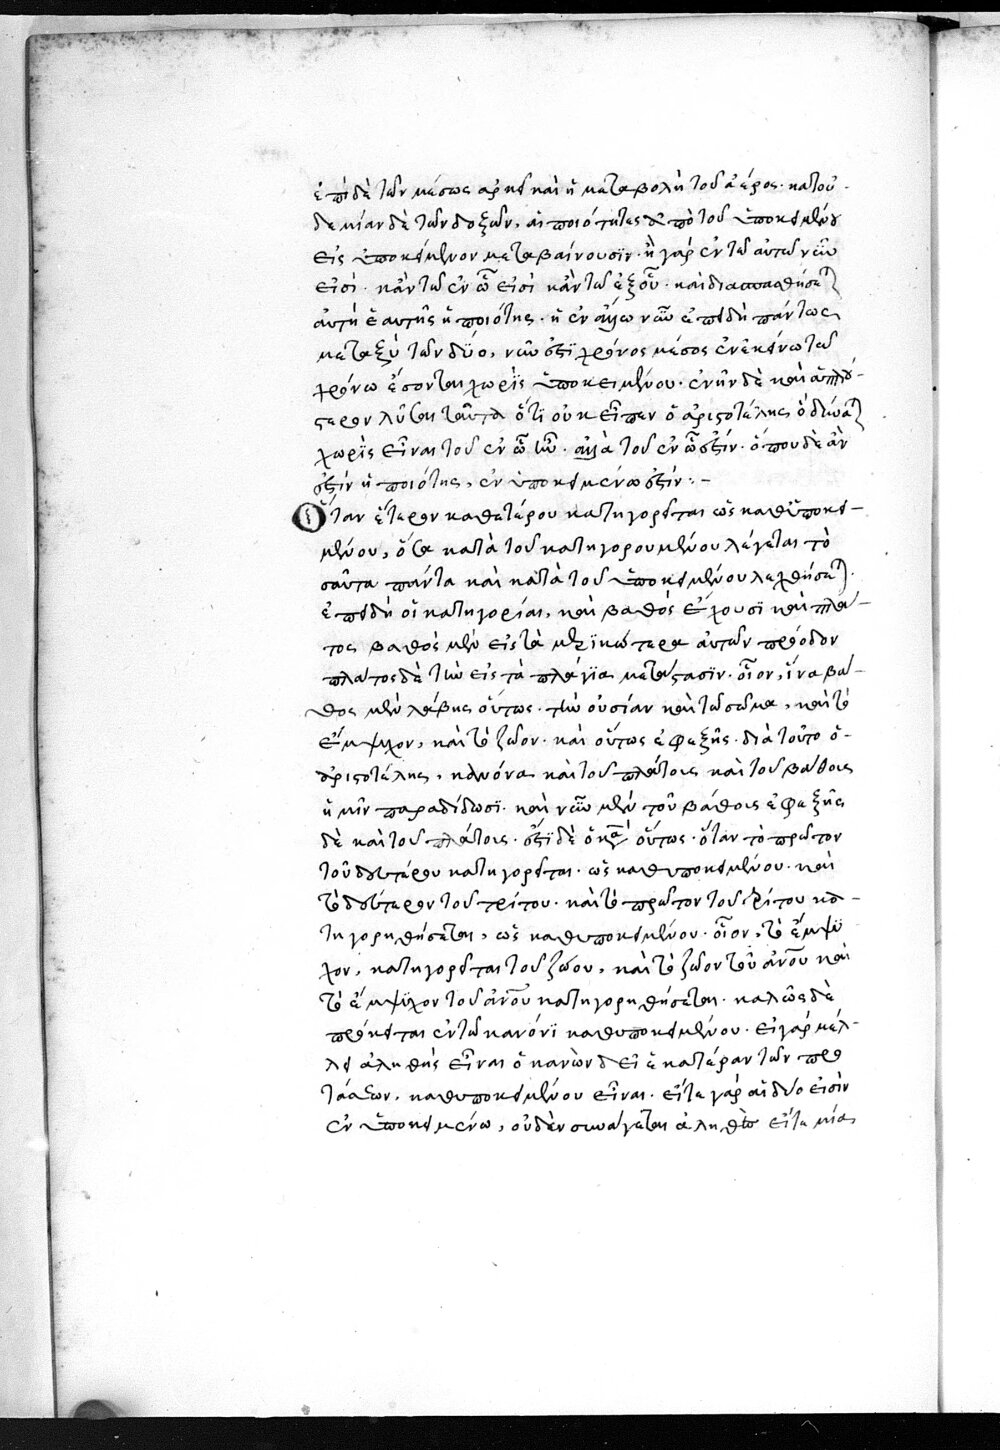 ἐπὶ δὲ τῶν μέσως ἀρκεῖ καὶ ἡ μεταβολὴ τοῦ ἀέρος· κατ' οὐ-
δεμίαν δὲ τῶν δοξῶν, αἱ ποιότητες ἀπὸ τοῦ ὑποκειμένου
εἰς ὑποκείμενον μεταβαίνουσϊν· ἢ γὰρ ἐν τῶ αὐτῶ νῦν
εἰσί· κἂν τῶ ἐν ὧ εἰσί κἂν τῶ ἐξ οὗ· καὶ διασπασθήσεται
αὐτὴ ἑαυτῆς ἡ ποιότης· ἢ ἐν ἄλλω νῦν ἐπειδὴ πάντως
μεταξὺ τῶν δύο, νῦν ἐστϊ χρόνος μέσος ἐν ἐκείνω τῶ
χρόνω ἔσονται χωρὶς ὑποκειμένου· ἔνην δὲ καὶ ἁπλού-
στερον λῦσαι ταῦτα ὅτι οὐκ εἶπεν ὁ ἀριστοτέλης ἀδύνατον
χωρὶς εἶναι τοῦ ἐν ὧ ἦν· ἀλλὰ τοῦ ἐν ὧ ἐστίν· ὅπου δὲ ἂν
ἐστὶν ἡ ποιότης, ἐν ὑποκειμένω ἐστίν:-
Ὅταν ἕτερον καθ' ἑτέρου κατηγορεῖται ὡς καθ' ὑποκει-
μένου, ὅσα κατὰ τοῦ κατηγορουμένου λέγεται το
σαῦτα πάντα καὶ κατὰ τοῦ ὑποκειμένου λεχθήσεται.
ἐπειδὴ οἱ κατηγορίαι, καὶ βαθὸς ἔχουσϊ καὶ πλά-
τος βαθὸς μὲν εἰς τὰ μερϊκώτερα αὐτῶν πρόοδον
πλάτος δὲ τὴν εἰς τὰ πλάγϊα μετάστασϊν· οἷον, ἵνα βά-
θος μὲν λάβης οὕτως· τὴν οὐσίαν καὶ τὼ σῶμα, καὶ τὸ
ἔμψυχον, καὶ τὸ ζῶον· καὶ οὕτως ἐφεξῆς· διὰ τοῦτο ὁ
ἀριστοτέλης, κανόνα καὶ τοῦ πλάτους καὶ τοῦ βάθους
ἡμῖν παραδίδωσϊ· καὶ νῦν μὲν τοῦ βάθους ἐφεξῆς
δὲ καὶ τοῦ πλάτους· ἐστϊ δὲ ὁ κανὼν οὕτως· ὅταν τὸ πρῶτον
τοῦ δευτέρου κατηγορεῖται· ὡς καθ' υποκειμένου· καὶ
τὸ δεύτερον τοῦ τρίτου· καὶ τὸ πρῶτον τοῦ τρίτου κα-
τηγορηθήσεται, ὡς καθ' υποκειμένου· οἷον, τὸ ἔμψϋ
χον, κατηγορεῖται τοῦ ζώου, καὶ τὸ ζῶον τοῦ ἀνου καὶ
τὸ ἔμψϋχον τοῦ ἀνου κατηγορηθήσεται· καλῶς δὲ
πρόκειται ἐν τῶ κανόνϊ καθ' υποκειμένου· εἰ γὰρ μέλ-
λει ἀληθὴς εἶναι ὁ κανὼν δεῖ ἑκατέραν τῶν προ
τάσεων, καθ' υποκειμένου εἶναι· εἴτε γὰρ αἱ δύο εἰσὶν
ἐν ὑποκειμένω, οὐδὲν συνάγεται ἀληθὲς εἴτε μία